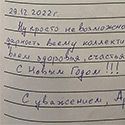 29.12.2022г.
Ну просто невозможно
дарность всему коллекти
всем здоровья, счастья
С Новым Годом!!!
С уважением, А